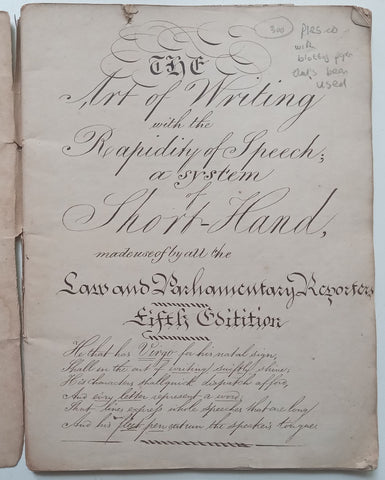 THE
Art of Writing
with the
Rapidity of Speech;
a system
of
Short-Hand,
made use of by all the
Law and Parliamentary Reporters
Fifth Editition
He that has Virgo for his natal sign,
Shall in the art of writing swiftly shine;
His characters shall quick dispatch afford,
And evry letter represent a word,
That lines express whole speeches that are long
And his fleet pen outrun the speaker's tongue.
300
with
blotting paper
that's been
used